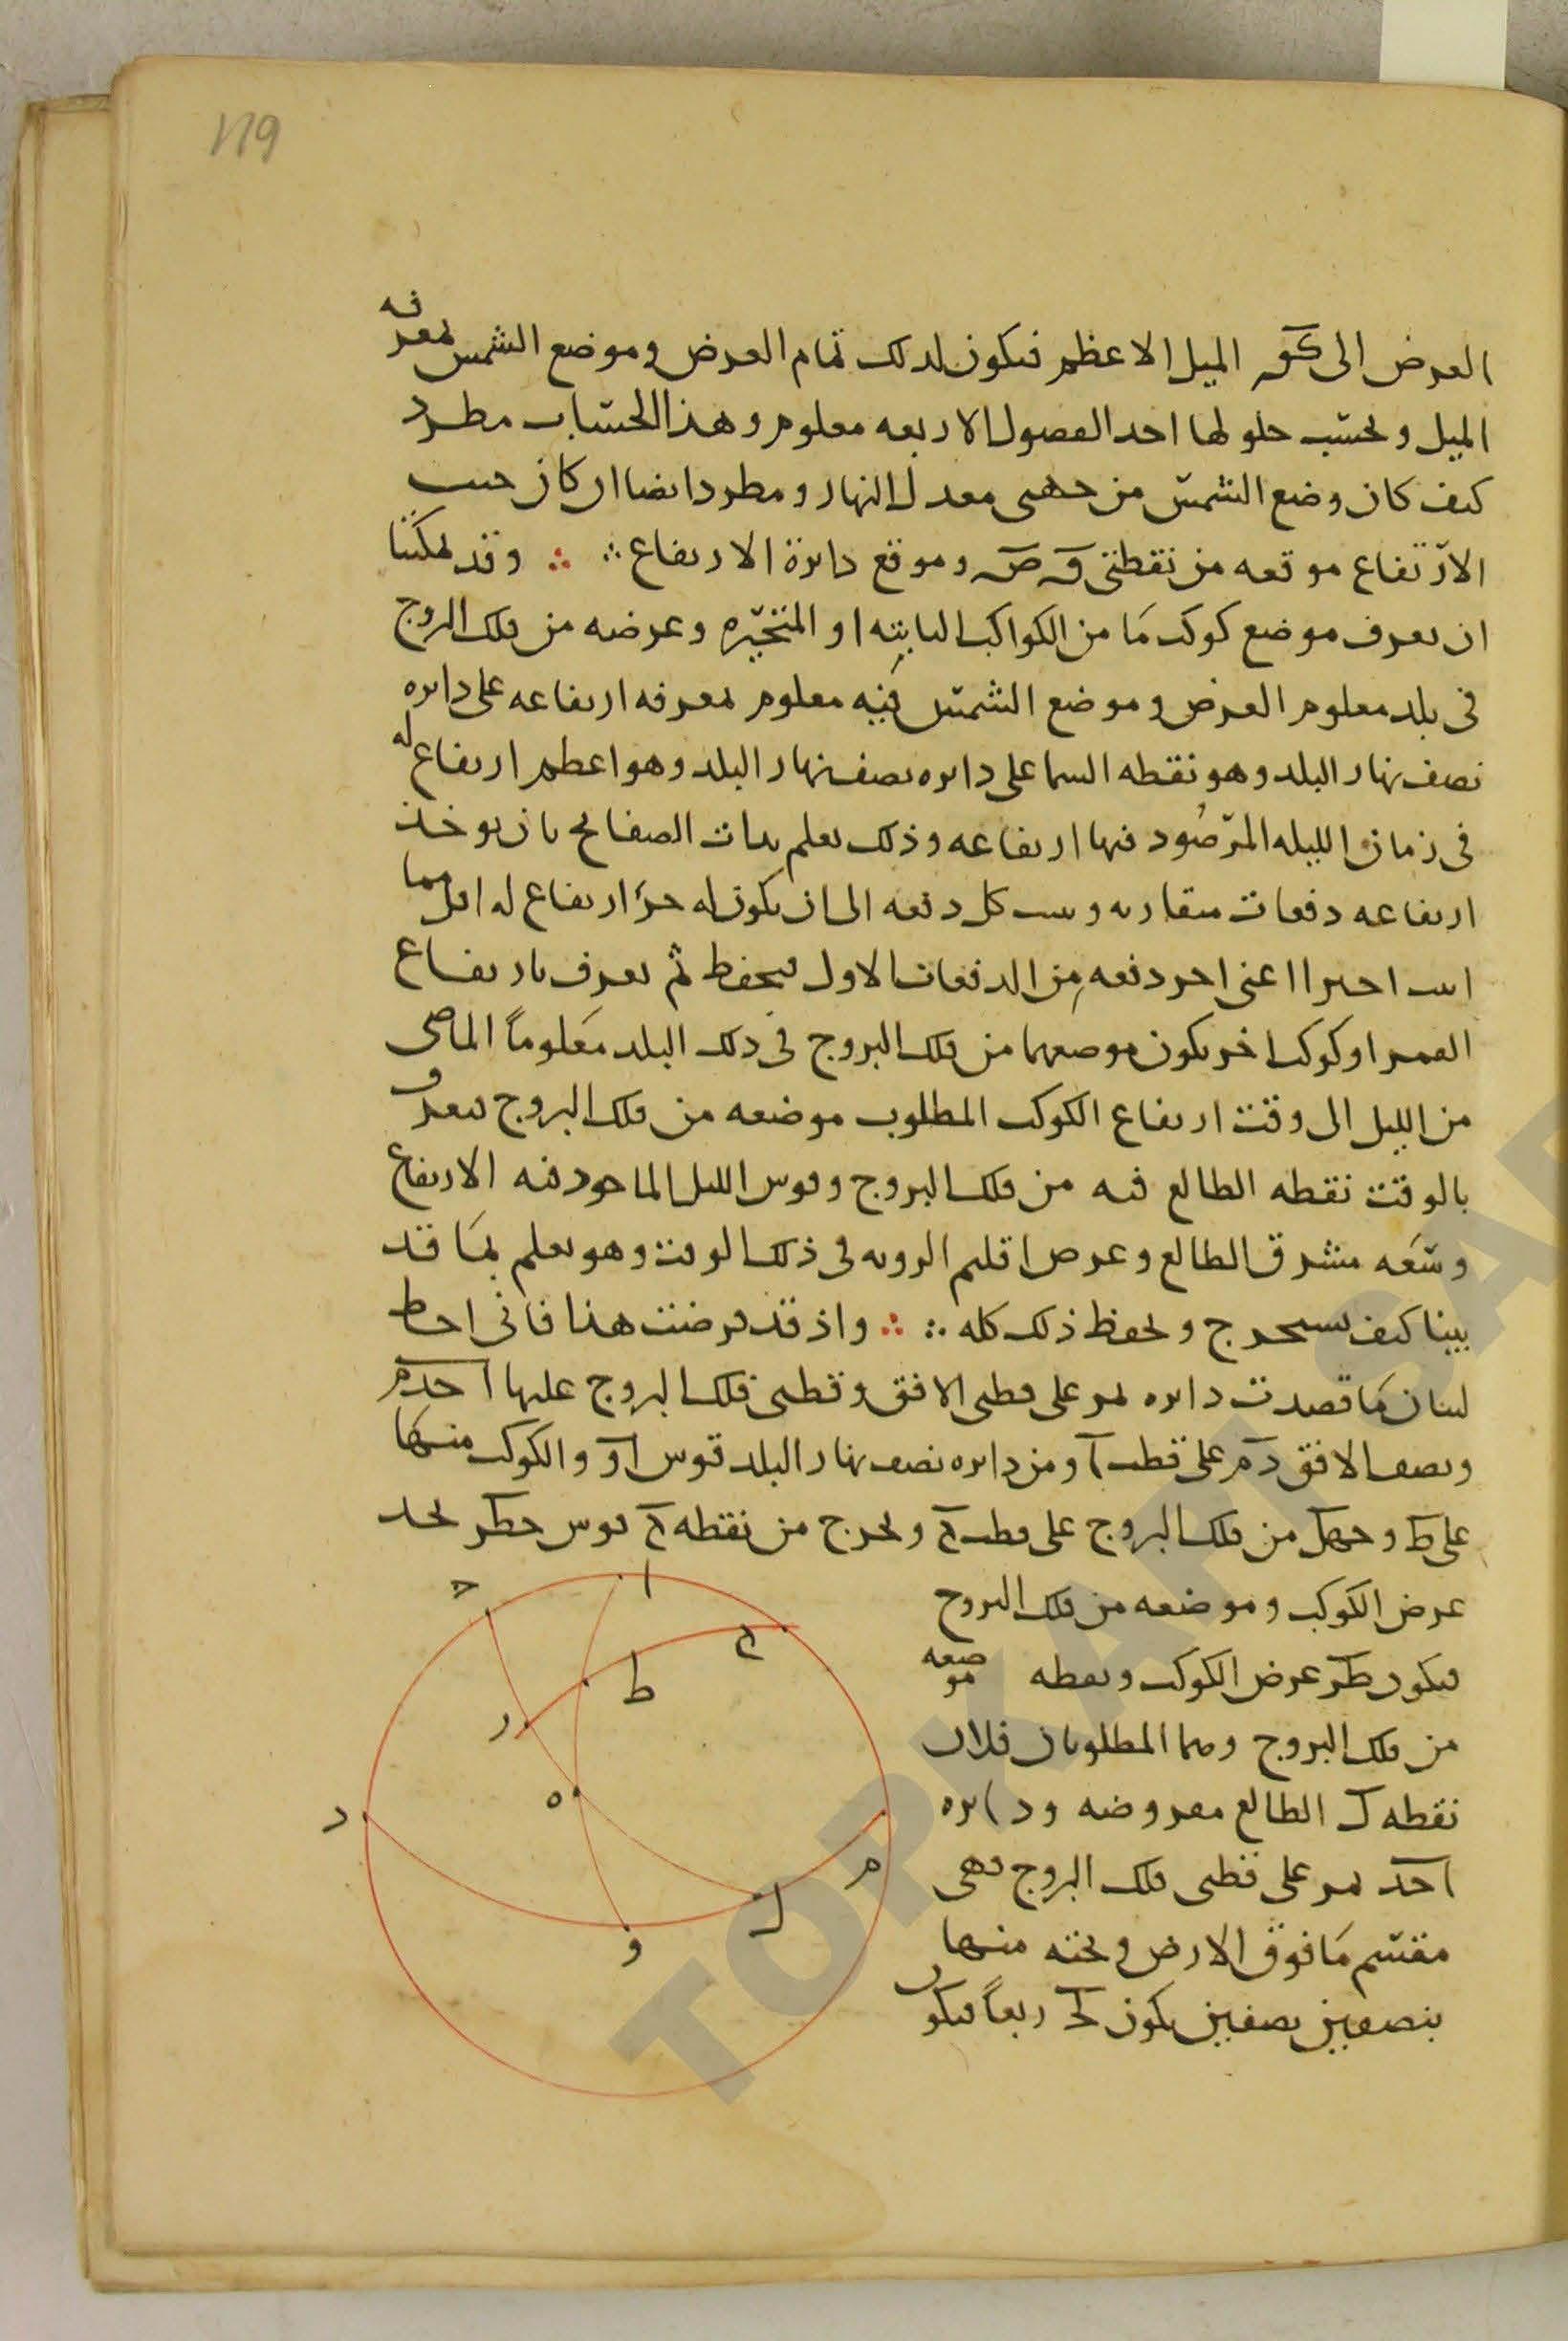 119
العرض الى كَقـ الميل الاعظم فيكون لذلك تمام العرض وموضع الشمس لمعرفه
الميل ولحسب حلولها احد الفصول الاربعه معلوم وهذا الحساب مطرد
كيف كان وضع الشمس من جهتى معدل النهار ومطرد ايضا ان كان جيب
الارتفاع موقعه من نقطتى ق ص وموقع دايرة الارتفاع وقد يمكننا
ان نعرف موضع كوكب مَا من الكواكب الثابته او المتحيّره وعرضه من فلك البروج
فى بلد معلوم العرض وموضع الشمس فيه معلوم بمعرفه ارتفاعه على دايره
نصف نهار البلد وهو نقطه السما على دايره نصف نهار البلد وهو اعظم ارتفاع له
فى زمان الليله المرصُود فيها ارتفاعه وذلك يعلم بذات الصفايح بان يوخذ
ارتفاعه دفعات متقاربه كل دفعه الى ان يكون له ارتفاع له اقل مما
اخيرا اعنى اخر دفعه من الدفعات الاول فيحفظ ثم نعرف بارتفاع
القمر او كوكب اخر يكون موضعهما من فلك البروج فى ذلك البلد معلوماً الماضى
من الليل الى وقت ارتفاع الكوكب المطلوب موضعه من فلك البروج فنعرف
بالوقت نقطه الطالع فيه من فلك البروج وقوس الليل الماخوذ فيه الارتفاع
وسَعَه مشرق الطالع وعرض اقليم الرويه فى ذلك الوقت وهو يعلم بمَا قد
بينا كيف يستخرج ولحفظ ذلك كله واذ قد فرضت هذا فانى احاط
لبيان مَا قصدت دايره تمر على قطبى الافق وقطبى فلك البروج عليها ا ح د م
ونصف الافق د م على قطب ا ومن دايره نصف نهار البلد قوس ا و والكوكب منها
على ط و ح ه ل من فلك البروج على قطب ج ونخرج من نقطه ج قوس ج ط ر نحد
عرض الكوكب وموضعه من فلك البروج
فيكون ط ر عرض الكوكب ونقطه موضعه
من فلك البروج وهما المطلوبان فلان
نقطه ل الطالع مفروضه ودايره
ا ح د تمر على قطبى فلك البروج فهى
مقتسم مَا فوق الارض وتحته منها
بنصفين نصفين يكون ل ح ربعاً فيكون
ا
ح
ج
ط
ر
ه
د
م
ل
و